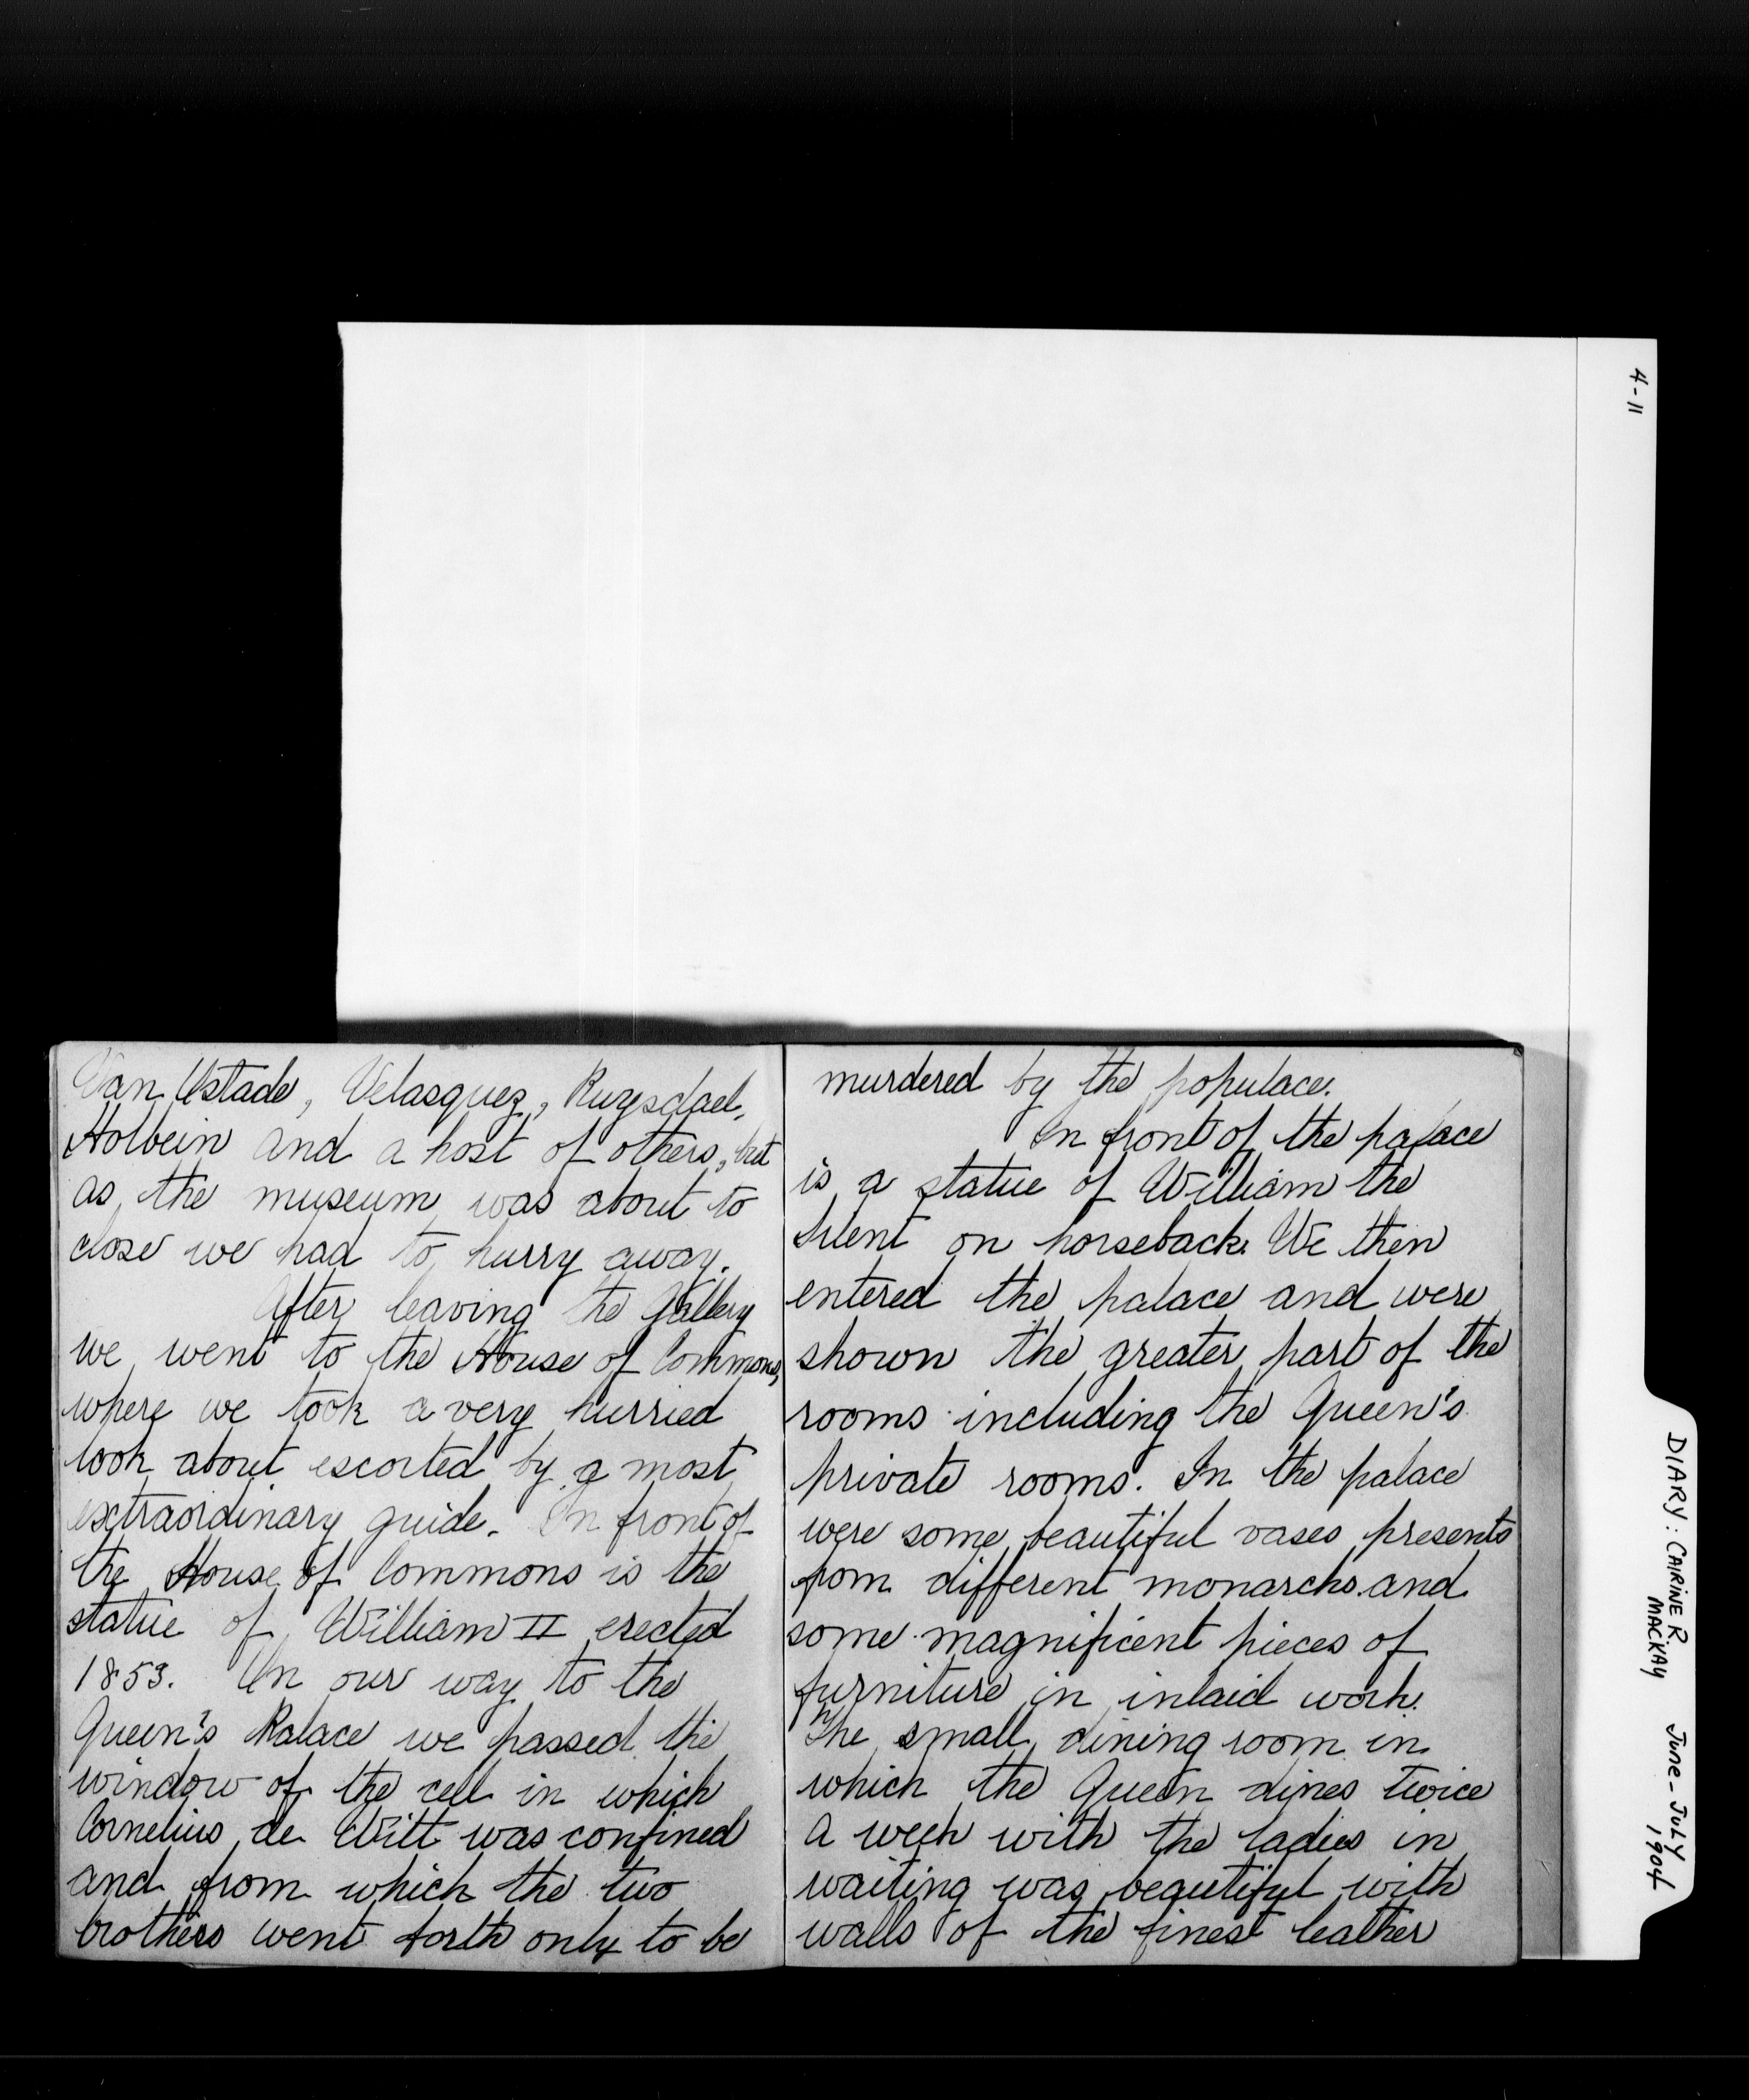 Van Ostade, Velasquez, Ruysdael,
Holbein and a host of others, but
as the museum was about to
close we had to hurry away.
After leaving the Gallery
we went to the House of Commons,
where we took a very hurried
look about escorted by a most
extraordinary guide. In front of
the House of Commons is the
statue of William II erected
1853. On our way to the
Queen's Palace we passed the
window of the cell in which
Cornelius de Witt was confined
and from which the two
brothers went forth only to be
murdered by the populace.
In front of the palace
is a statue of William the
Silent on horseback. We then
entered the palace and were
shown the greater part of the
rooms including the Queen's
private rooms. In the palace
were some beautiful vases presents
from different monarchs and
some magnificent pieces of
furniture in inlaid work.
The small dining room in
which the Queen dines twice
a week with the ladies in
waiting was beautiful with
walls of the finest leather
4-11
DIARY: CAIRINE R.
MACKAY
June - July
1904